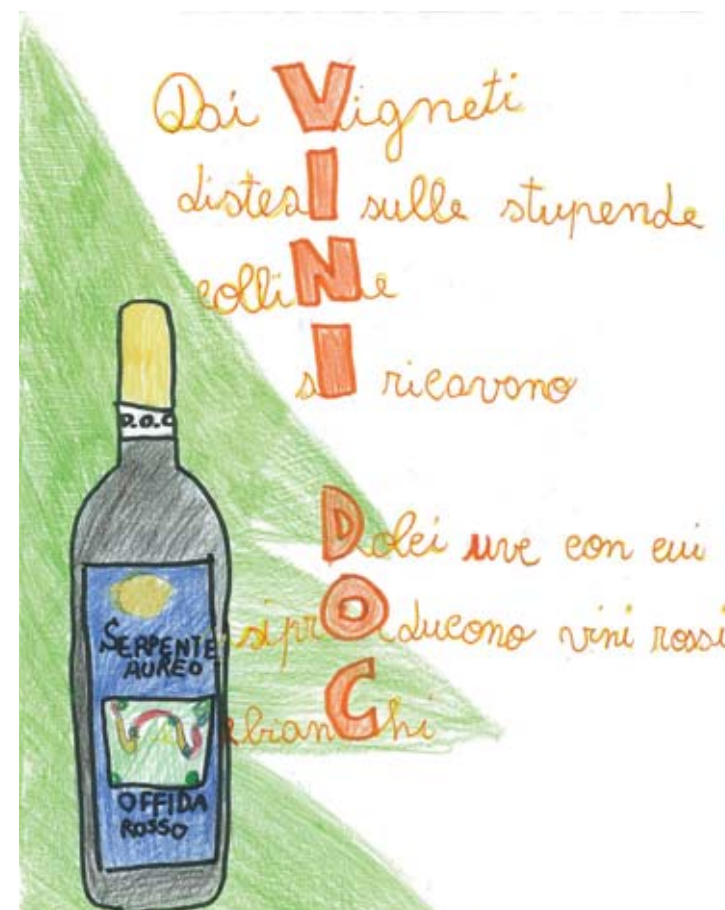 Dai Vigneti
distesI sulle stupende
colliNe
sI ricavano
Dolci uve con cui
si prOducono vini rossi
e bianChi
D.O.C
SERPENTE
AUREO
OFFIDA
ROSSO